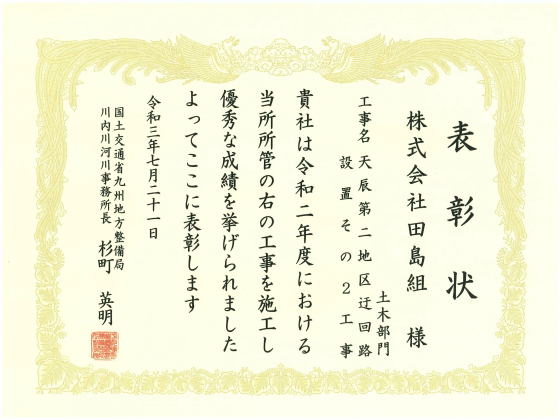 表彰状
株式会社田島組 様
土木部門
工事名 天辰第二地区迂回路
設置その2工事
貴社は令和二年度における
当所所管の右の工事を施工し
優秀な成績を挙げられました
よってここに表彰します
令和三年七月二十一日
国土交通省九州地方整備局
川内川河川事務所長 杉町 英明